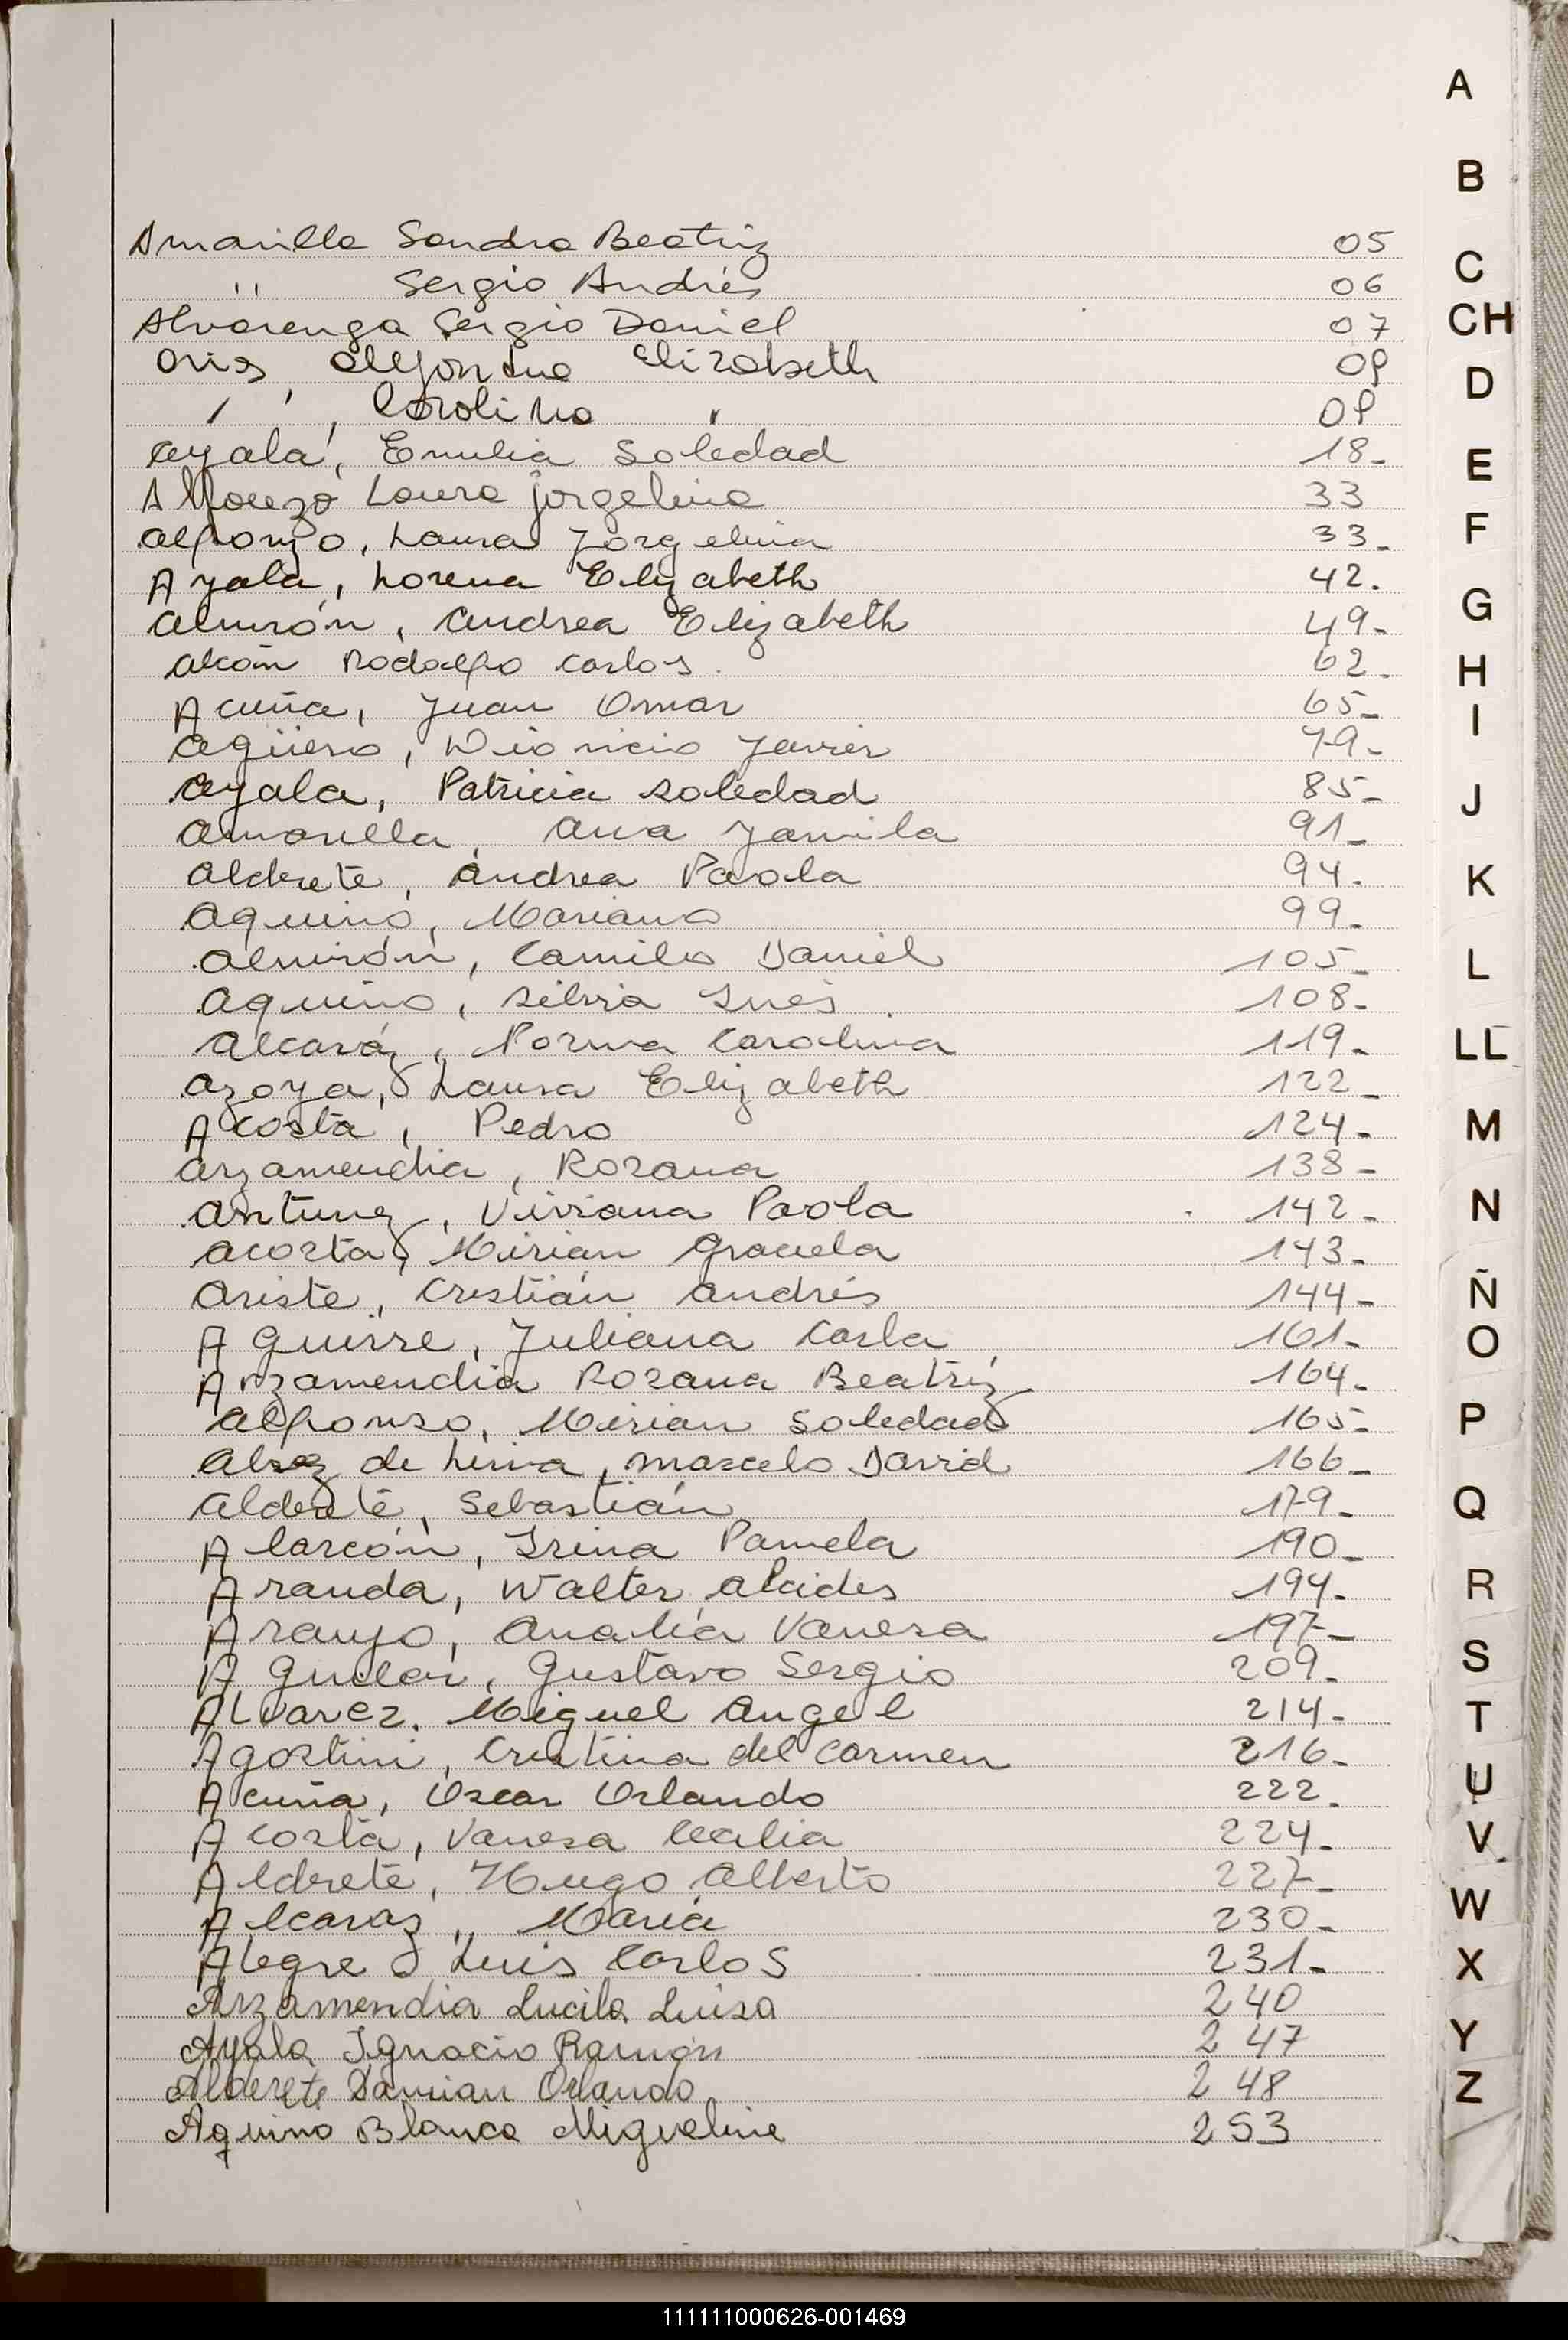 Amarilla Sandra Beatriz 05
" Sergio Andrés 06
Alvarenga Sergio Daniel 07
Elizabeth 09
" , Carolina " 09
Ayala, Emilia Soledad 18-
Alfonzo Laura Jorgelina 33
Alfonzo, Laura Jorgelina 33-
Ayala, Lorena Elizabeth 42.
Almirón, Andrea Elizabeth 49-
Rodolfo Carlos 62-
Acuña, Juan Omar 65-
Agüero, Dionicio Javier 79-
Ayala, Patricia Soledad 85-
Amarilla, Ana Yamila 91-
Alderete, Andrea Paola 94-
Aquino, Mariana 99-
Almirón, Camilo Daniel 105-
Aquino, Silvia Inés 108-
Alcaráz, Norma Carolina 119-
Azoya, Laura Elizabeth 122-
Acosta, Pedro 124-
Arzamendia, Rozana 138-
Antunez, Viviana Paola 142-
Acosta, Mirian Graciela 143-
Ariste, Cristián Andrés 144-
Aguirre, Juliana Carla 161-
Arzamendia Rozana Beatríz 164-
Alfonso, Mirian Soledad 165-
de Leiva, Marcelo David 166-
Alderete, Sebastián 179-
Alarcón, Irina Pamela 190-
Aranda, Walter Alcides 194-
Araujo, Analía Vanesa 197-
Aguilar, Gustavo Sergio 209-
Alvarez, Miguel Angel 214-
Agostini, Cristina del Carmen 216-
Acuña, Oscar Orlando 222-
Acosta, Vanesa Cecilia 224-
Alderete, Hugo Alberto 227-
Alcaraz, María 230-
Alegre, Luis Carlos 231-
Arzamendia Lucila Luisa 240
Ayala Ignacio Ramón 247
Alderete Damian Orlando 248
Aquino Blanca Miguelina 253
A
B
C
CH
D
E
F
G
H
I
J
K
L
LL
M
N
Ñ
O
P
Q
R
S
T
U
V
W
X
Y
Z
111111000626-001469